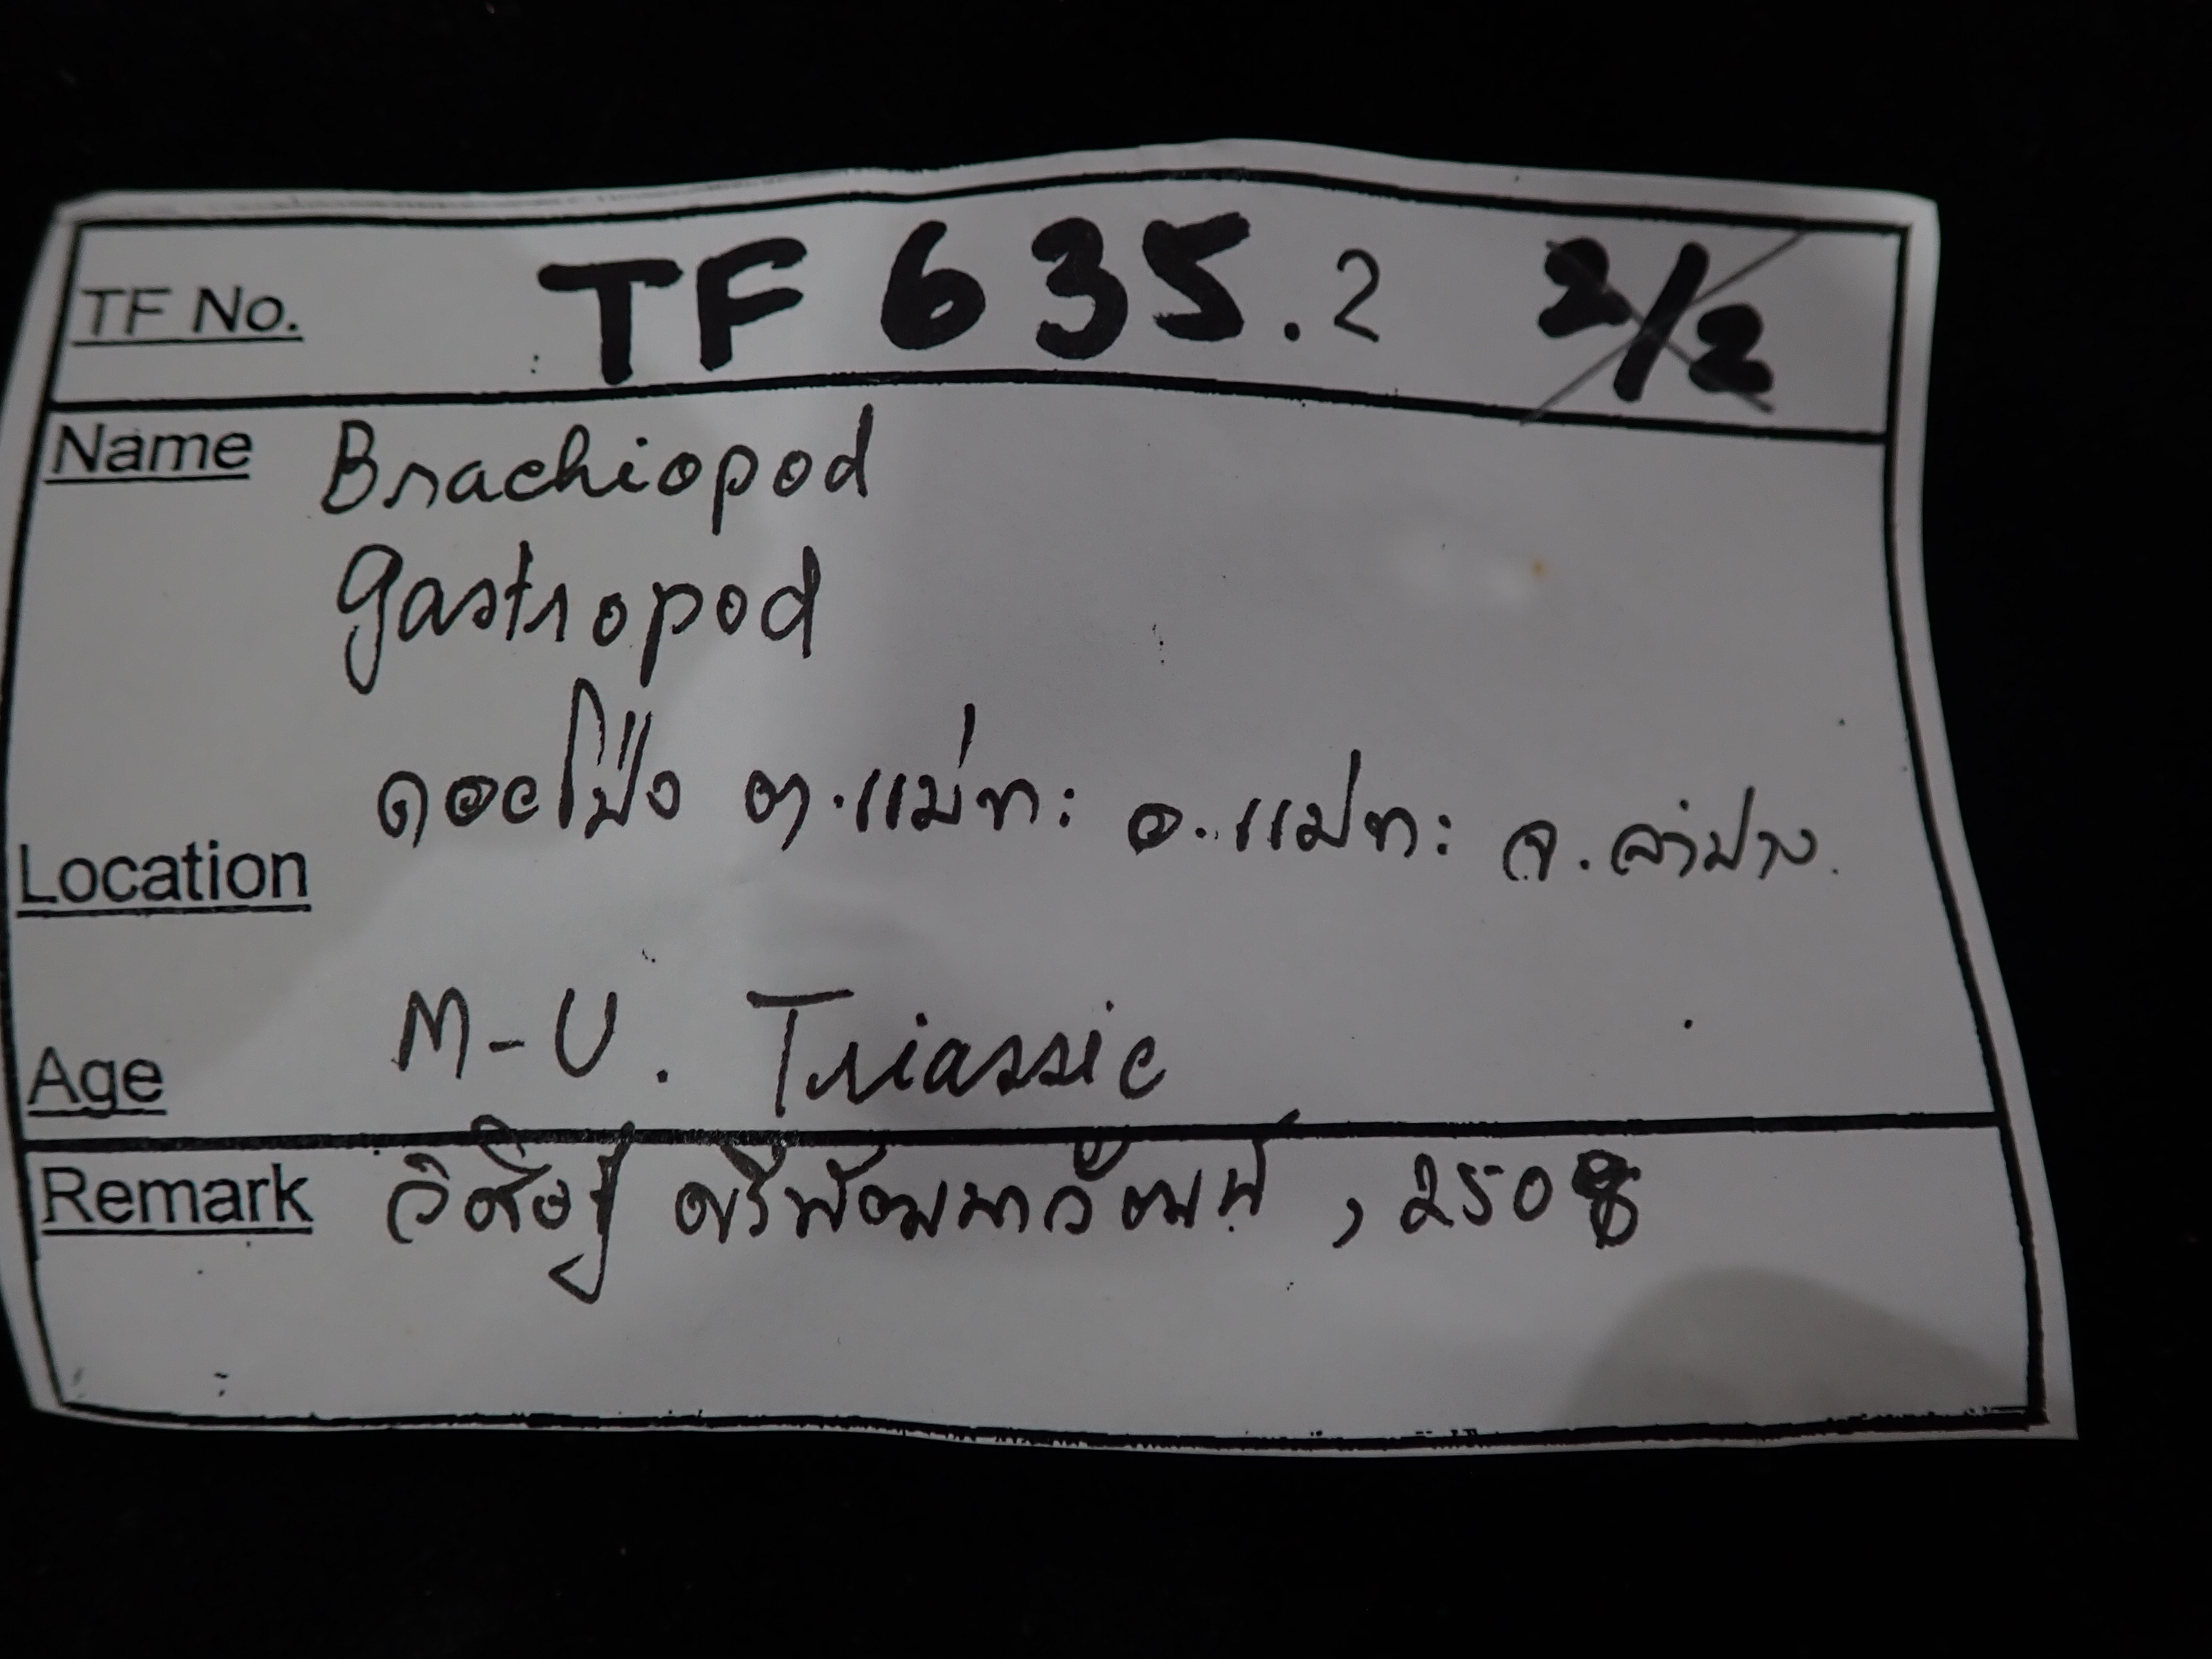 TF No. TF 635.2 2/2
Name Brachiopod
gastropod
Location ดอยโป่ง ต.แม่ทะ อ.แม่ทะ จ.ลำปาง.
Age M-U. Triassic
Remark ศรีพัฒนาวัฒน์ , 2508